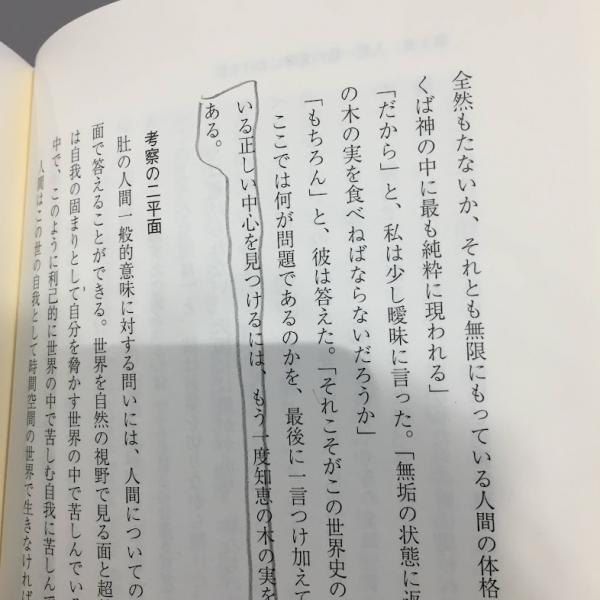 全然もたないか、それとも無限にもっている人間の体格
くば神の中に最も純粋に現われる」
「だから」と、私は少し曖昧に言った。「無垢の状態に返
の木の実を食べねばならないだろうか」
「もちろん」と、彼は答えた。「それこそがこの世界史の
ここでは何が問題であるのかを、最後に一言つけ加えて
いる正しい中心を見つけるには、もう一度知恵の木の実を
ある。
考察の二平面
肚の人間一般的意味に対する問いには、人間についての
面で答えることができる。世界を自然の視野で見る面と超
は自我の固まりとして自分を脅かす世界の中で苦しんでいる
中で、このように利己的に世界の中で苦しむ自我に苦しんで
人間はこの世の自我として時間空間の世界で生きなければ